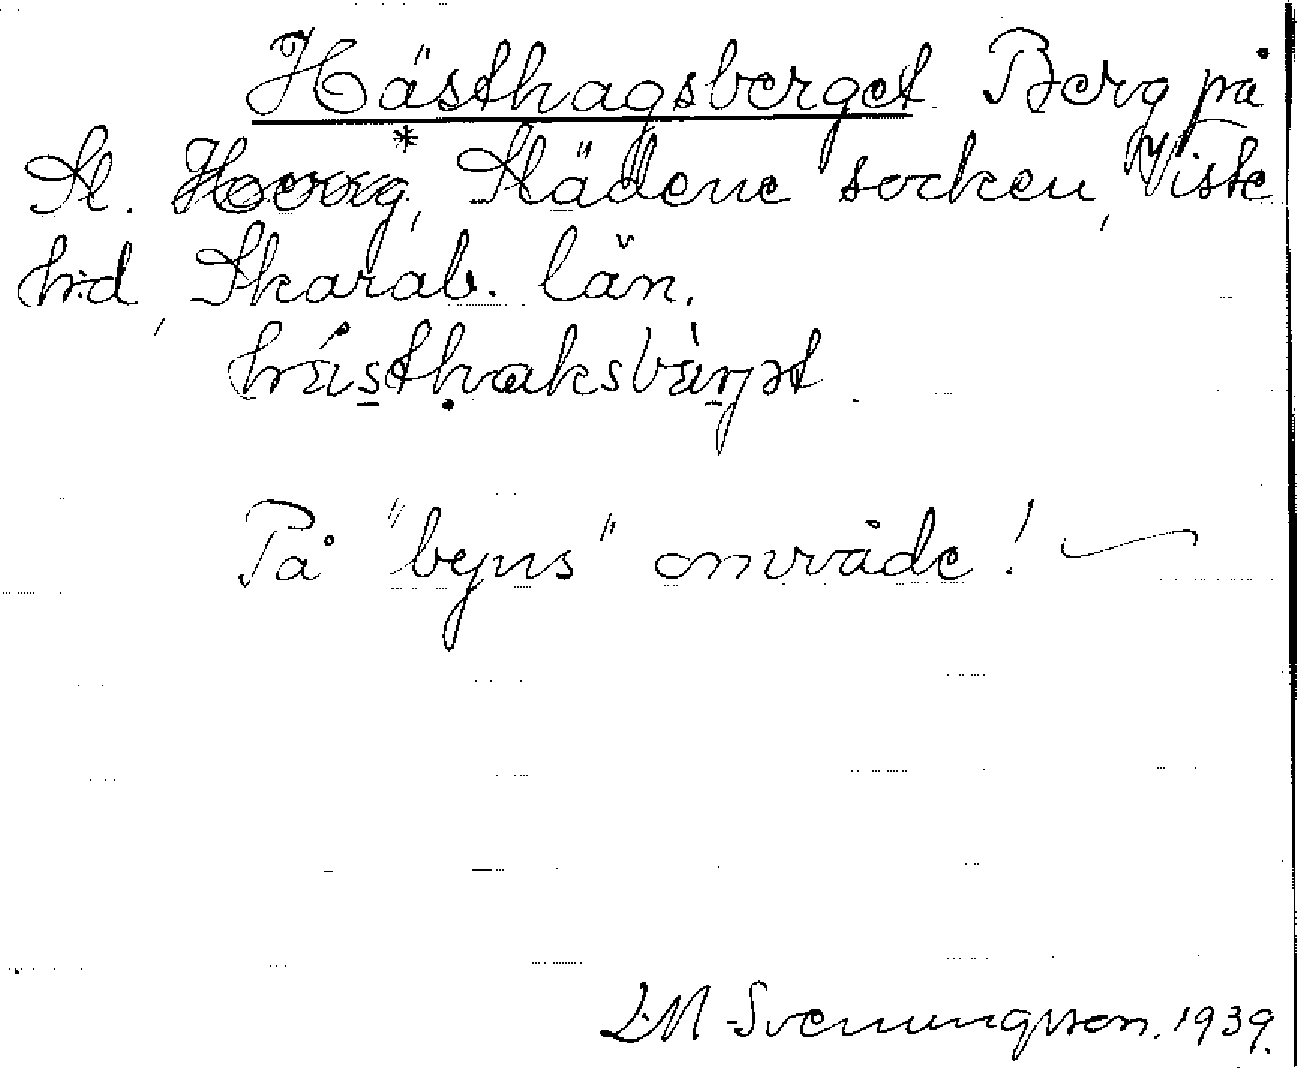 Hästhagsberget Berg på
St. Hovvg*, Slädene socken, Viste
hd, Skarab. län.
hästhaksbärjət.
På "byns" område! —
L. M. Svenungsson. 1939.